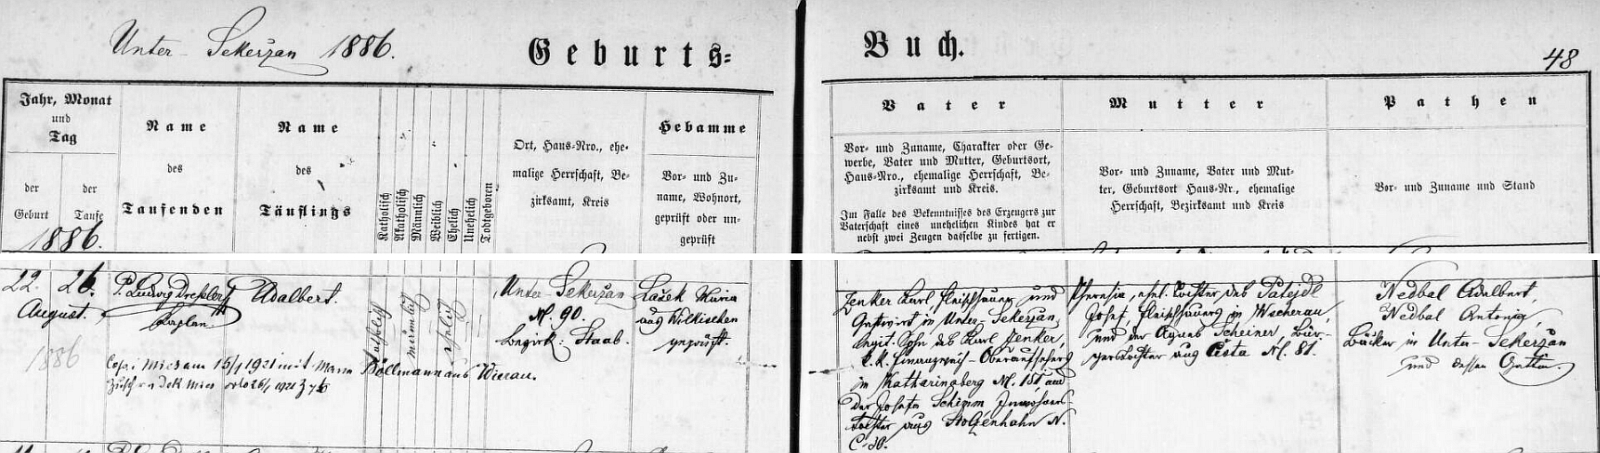 Unter Sekeržan 1886.
Geburts-
Buch.
48
Jahr, Monat
und
Tag
der
Geburt
der
Taufe
1886.
Name
des
Taufenden
Name
des
Täuflings
Katholisch
Akatholisch
Männlich
Weiblich
Ehelich
Unehelich
Todtgeboren
Ort, Haus-Nro., ehe-
malige Herrschaft, Be-
zirksamt, Kreis
Hebamme
Vor- und Zu-
name, Wohnort,
geprüft oder un-
geprüft
Vater
Vor- und Zuname, Charakter oder Ge-
werbe, Vater und Mutter, Geburtsort,
Haus-Nro., ehemalige Herrschaft, Be-
zirksamt und Kreis.
Im Falle des Bekenntnisses des Erzeugers zur
Vaterschaft eines unehelichen Kindes hat er
nebst zwei Zeugen dasselbe zu fertigen.
Mutter
Vor- und Zuname, Vater und Mut-
ter, Geburtsort Haus-Nr., ehemalige
Herrschaft, Bezirksamt und Kreis
Pathen
Vor- und Zuname und Stand
22. 26.
August.
1886
P. Ludwig Dressler
Kaplan.
Adalbert.
katholisch
männlich
ehelich
Unter Sekeržan
N. 90.
Bezirk: Staab.
Lašek Maria
aus Wilkischen
geprüft.
Cop. Mies am 15/1 1921 mit Marie Böllmann aus Wierau.
Zuschr. Dek Mies
Zenker Karl, Fleischhauer und
Gastwirt in Unter-Sekeržan,
legit. Sohn des Karl Zenker,
k.k. Finanzwach-Oberaufsehers
in Katharinaberg N. 151 und
der Josefa Schimm, Inwohners-
tochter aus Stolzenhahn N.
C. 30.
Theresia, ehel. Tochter des Patejdl
Josef, Fleischhauers in Wscherau,
und der Agnes Scheiner, Bür-
gerstochter aus Tista N. 81.
Nedbal Adalbert,
Nedbal Antonia,
Bäcker in Unter-Sekeržan
und dessen Gattin.